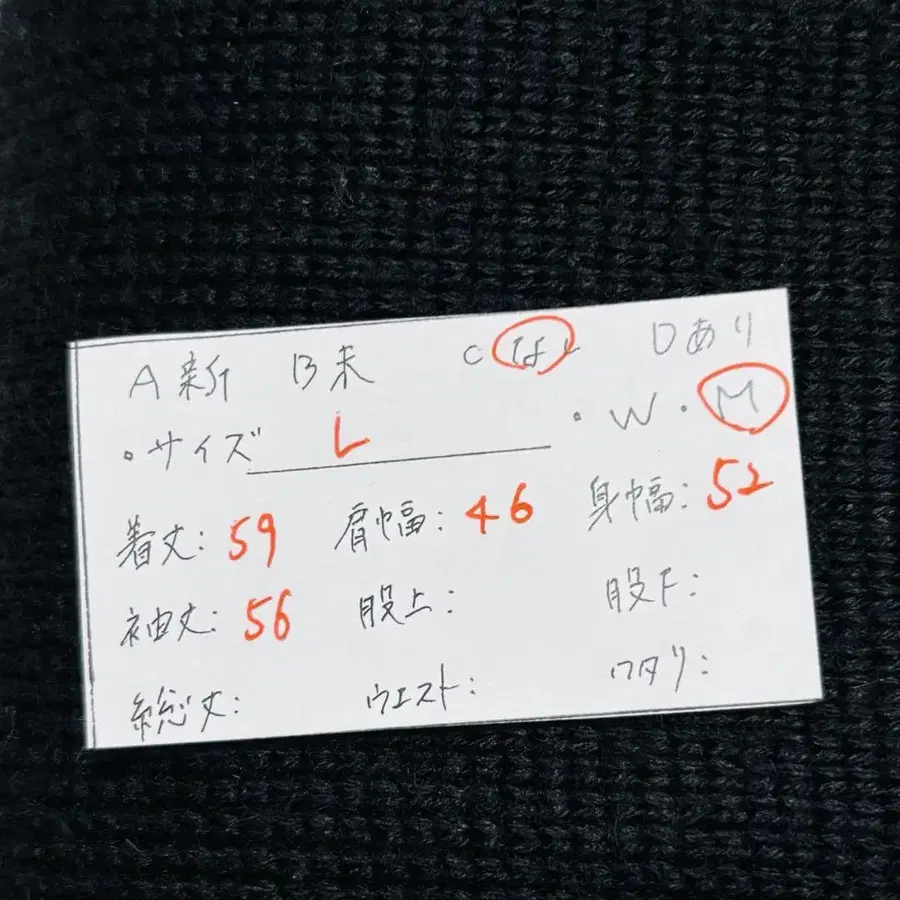 A新 B未 Cなし Dあり
・サイズ L ・W・M
着丈:59 肩幅:46 身幅:52
袖丈:56 股上: 股下:
総丈: ウエスト: ワタリ: